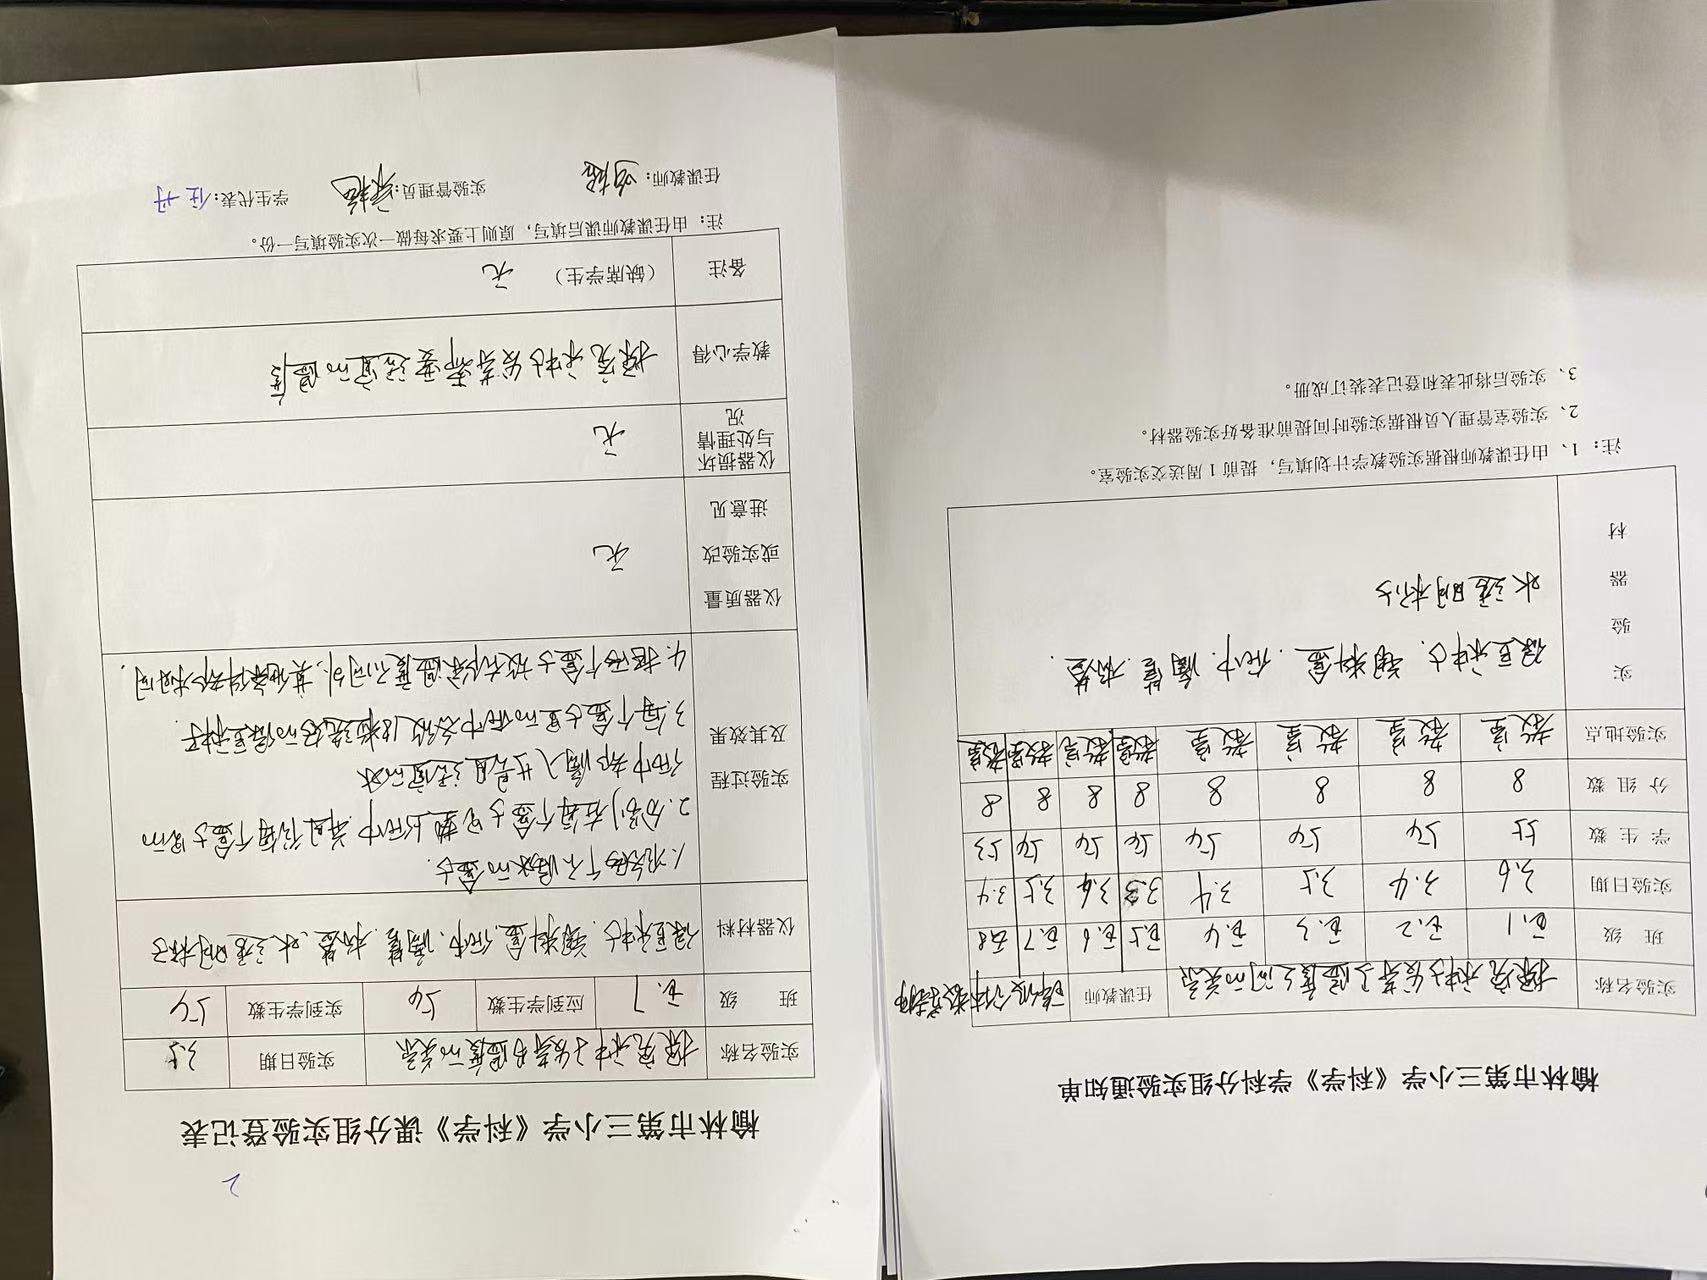 榆林市第三小学《科学》学科分组实验通知单
实验名称 探究种子发芽与温度之间的关系 任课教师
班 级 五.1 五.2 五.3 五.4 五.5 五.6 五.7 五.8
实验日期 3.6 3.4 3.5 3.4 3.4 3.5 3.4
学 生 数 55 54 54 54 54 54 54 53
分 组 数 8 8 8 8 8 8 8 8
实验地点 教室 教室 教室 教室 教室 教室 教室 教室
实验器材
绿豆种子、塑料盒、纸巾、滴管、标签
水、透明杯子
注：1、由任课教师根据实验教学计划填写，提前 1 周送交实验室。
2、实验室管理人员根据实验时间提前准备好实验器材。
3、实验后将此表和登记表装订成册。
2
榆林市第三小学《科学》课分组实验登记表
实验名称 探究种子发芽与温度的关系 实验日期 3.5
班 级 五.7 应到学生数 54 实到学生数 54
仪器材料 绿豆种子、塑料盒、纸巾、滴管、标签、水、透明杯子
实验过程及其效果
1.准备两个不漏水的盒子.
2.分别在每个盒子里垫上纸巾,并且给每个盒子里的
纸巾都滴入等量且适宜的水
3.每个盒子里的纸巾各放 粒选好的绿豆种子.
4.把两个盒子放在温度不同外,其他条件都相同.
仪器质量
或实验改
进意见
无
仪器损坏
与处理情
况
无
教学心得 探究种子发芽需要适宜的温度
备注 （缺席学生） 无
注：由任课教师课后填写，原则上要求每做一次实验填写一份。
任课教师： 实验管理员： 学生代表：